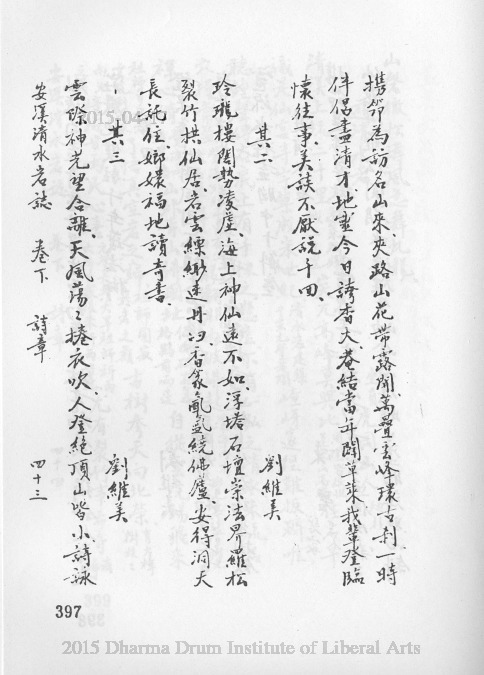 攜笻為訪名山來、夾路山花帶露開、萬疊雲峰環古剎、一時
伴侶盡清才、地靈今日誇香火、菴結當年闢草萊、我輩登臨
懷往事、美談不厭說千回、
其二 劉維美
玲瓏樓閣勢凌虛、海上神仙遠不如、浮塔石壇崇法界、羅松
裂竹拱仙居、岩雲縹緲迷丹□、香篆氤氳繞佛廬、安得洞天
長託住、嫏嬛福地讀奇書、
其三 劉維美
雲際神光望合離、天風蕩々捲衣吹、人登絕頂山皆小、詩詠
安溪清水岩誌 卷下 詩章 四十三
397
2015-04
2015 Dharma Drum Institute of Liberal Arts